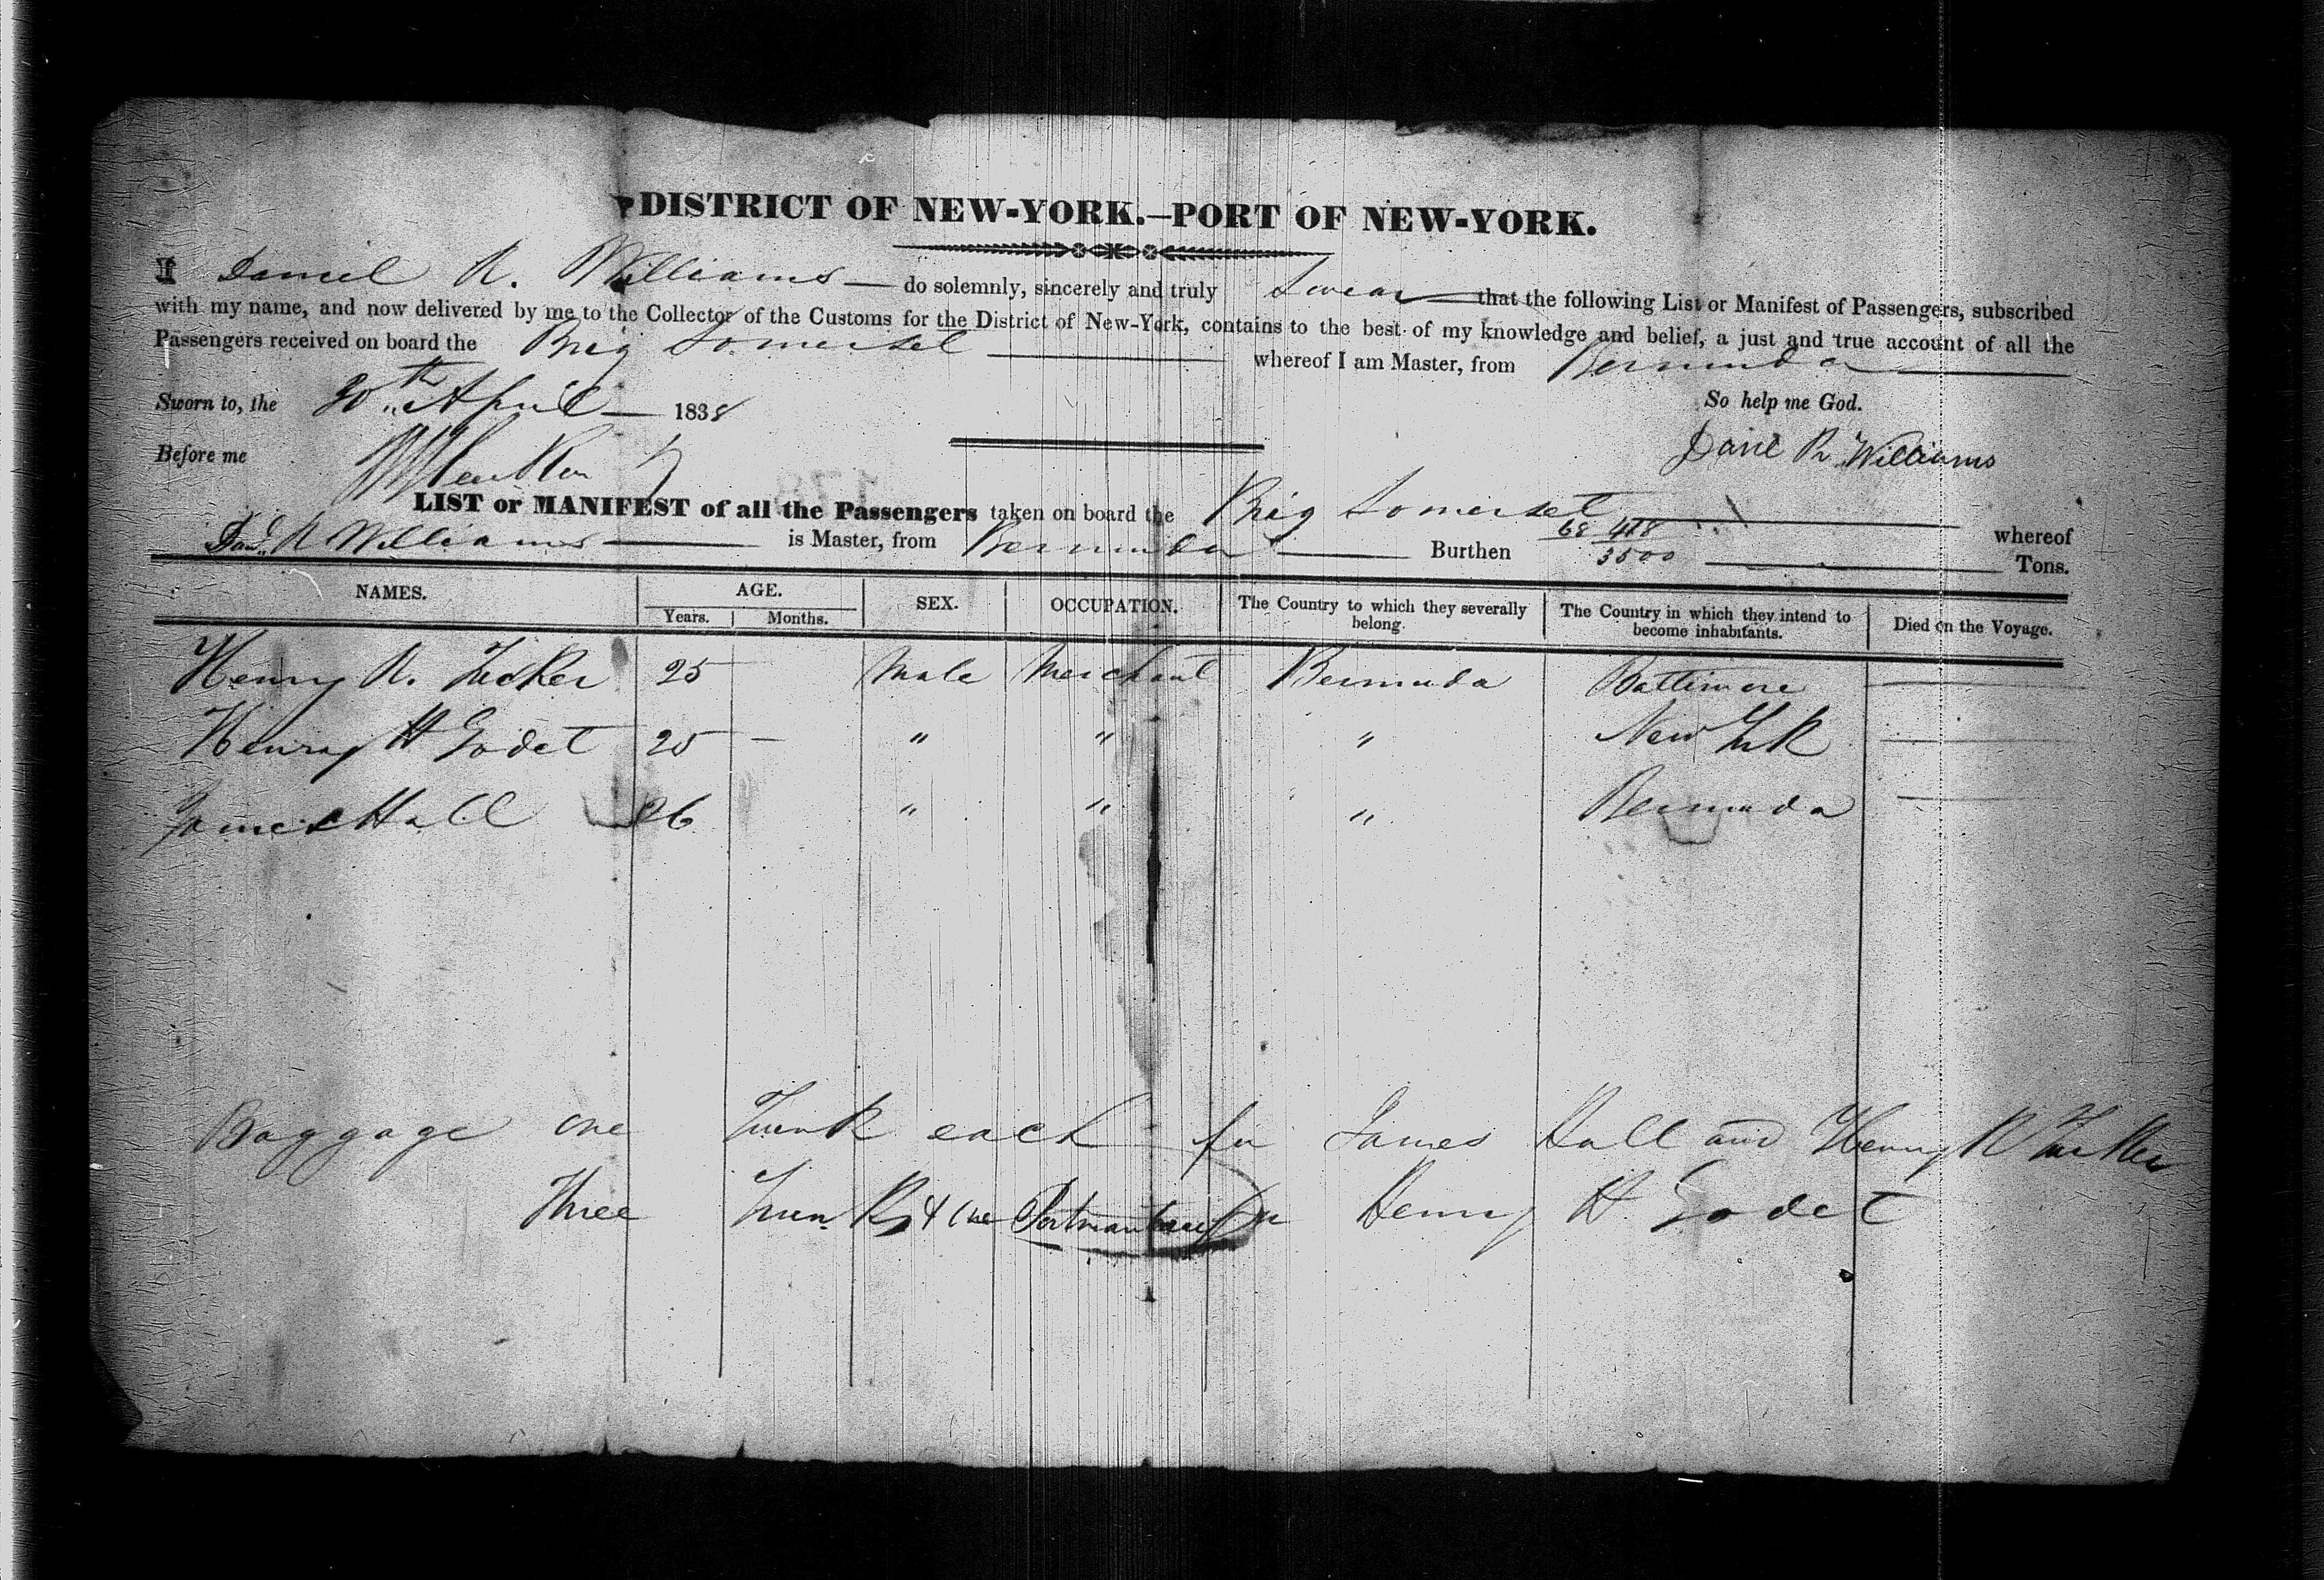 DISTRICT OF NEW-YORK.—PORT OF NEW-YORK.
I Daniel R. Williams — do solemnly, sincerely and truly Swear — that the following List or Manifest of Passengers, subscribed
with my name, and now delivered by me to the Collector of the Customs for the District of New-York, contains to the best of my knowledge and belief, a just and true account of all the
Passengers received on board the Brig Somerset whereof I am Master, from Bermuda
Sworn to, the 30th April — 1838 So help me God.
Before me Danl R Williams
LIST or MANIFEST of all the Passengers taken on board the Brig Somerset whereof
Danl. R Williams is Master, from Bermuda Burthen 68 418 3500 Tons.
NAMES. AGE. SEX. OCCUPATION. The Country to which they severally belong. The Country in which they intend to become inhabitants. Died on the Voyage.
Years. Months.
Henry R. Tucker 25 — Male Merchant Bermuda Baltimore —
Henry H Godet 25 — " " " New York —
James Hall 26 " " " Bermuda —
Baggage one Trunk each for James Hall and Henry R Tucker
Three Trunks & one Portmanteau for Henry H Godet